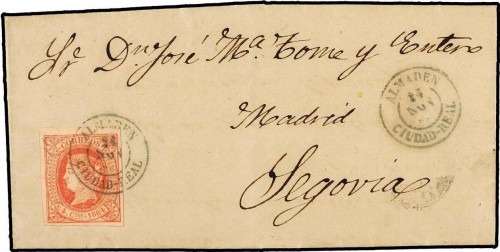 Sr. Dn. José Ma. Tome y Entero
Madrid
Segovia
ALMADEN
14
NOV
CIUDAD-REAL
ALMADEN
NOV
CIUDAD-REAL
CORREOS
4 CUOS 1864